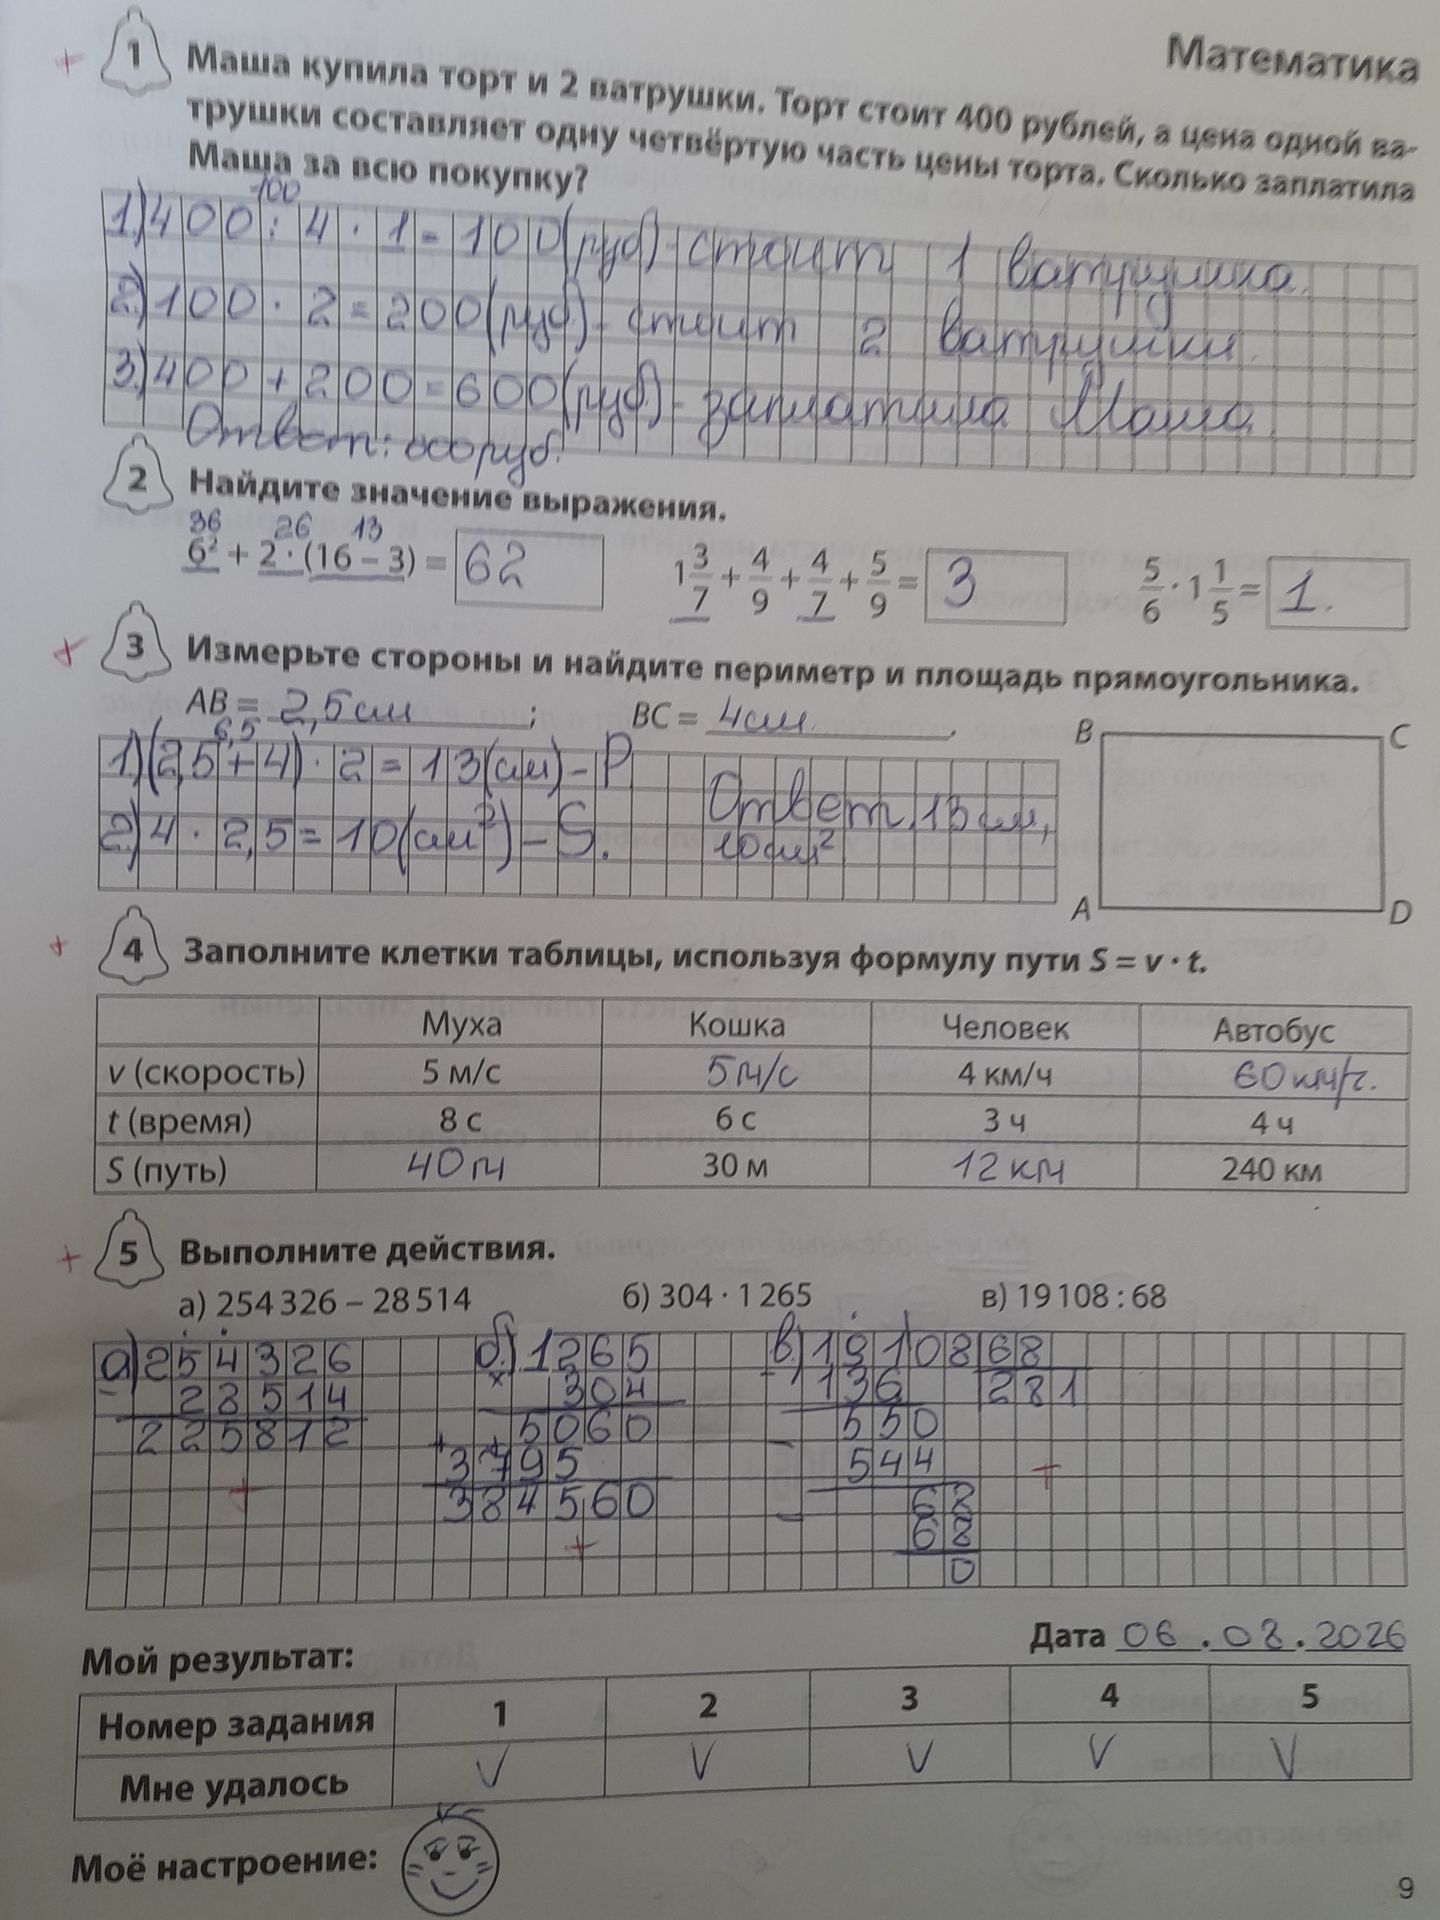 Математика
+ 1 Маша купила торт и 2 ватрушки. Торт стоит 400 рублей, а цена одной ва-
трушки составляет одну четвёртую часть цены торта. Сколько заплатила
Маша за всю покупку?
100
1) 400 : 4 · 1 = 100 (руб) - стоит 1 ватрушка.
2) 100 · 2 = 200 (руб.) - стоит 2 ватрушки.
3) 400 + 200 = 600 (руб.) - заплатила Маша
Ответ: 600 руб.
2 Найдите значение выражения.
36 26 13
6² + 2 · (16 – 3) = 62
1 3/7 + 4/9 + 4/7 + 5/9 = 3
5/6 · 1 1/5 = 1.
+ 3 Измерьте стороны и найдите периметр и площадь прямоугольника.
AB = 2,5 см ; BC = 4 см.
6,5
1) (2,5 + 4) · 2 = 13 (см) – P
2) 4 · 2,5 = 10 (см²) – S.
Ответ. 13 см,
10 см²
B C
A D
+ 4 Заполните клетки таблицы, используя формулу пути S = v · t.
Муха Кошка Человек Автобус
v (скорость) 5 м/с 5 м/с 4 км/ч 60 км/ч.
t (время) 8 с 6 с 3 ч 4 ч
S (путь) 40 м 30 м 12 км 240 км
+ 5 Выполните действия.
а) 254 326 – 28 514 б) 304 · 1 265 в) 19 108 : 68
а) 254326
– 28514
225812
+
б.) 1265
× 304
5060
+ 3795
384560
+
в.) 19108 68
– 136 281
550
– 544
68
– 68
0
+
Дата 06 . 08 . 2026
Мой результат:
Номер задания 1 2 3 4 5
Мне удалось V V V V V
Моё настроение:
9